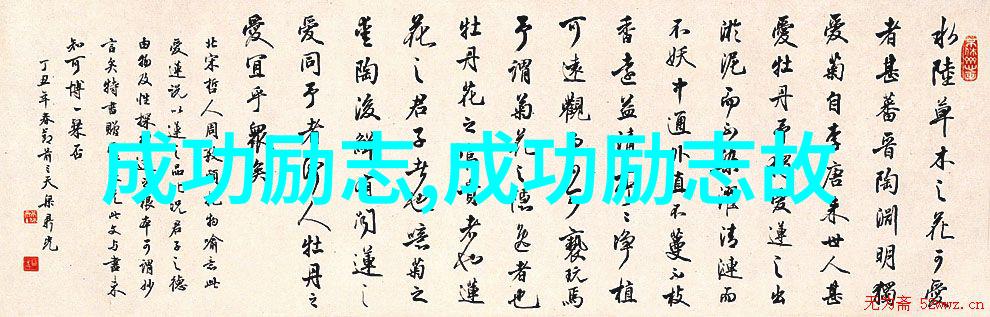 水陸草木之花可愛
者甚蕃晋陶淵明獨
愛菊自李唐来世人甚
愛牡丹予獨愛蓮之出
淤泥而不染濯清漣而
不妖中通外直不蔓不枝
香遠益清亭亭净植
可遠觀而不可褻玩焉
予謂菊花之隱逸者也
牡丹花之富貴者也蓮
花之君子者也噫菊之
愛陶後鮮有聞蓮之
愛同予者何人牡丹之
愛宜乎衆矣
北宋哲人周敦頤
愛蓮説以蓮之品比况君子之德
由物及性探
言矣特書贈
知可博一粲否
丁丑年春節前三天
成功励志,成功励志故
无为斋 52wwz.cn